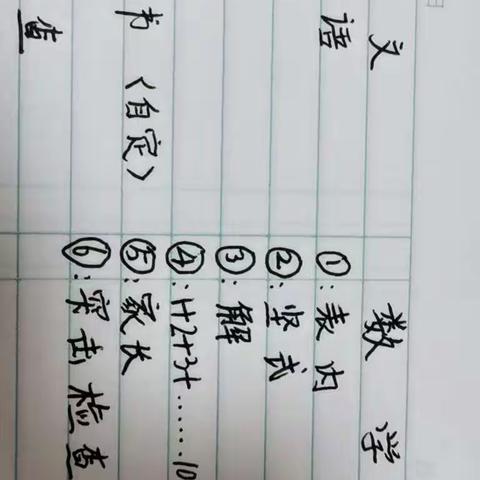 文
语
书〈自定〉
查
数 学
①:表内
②:竖式
③:解
④:1+2+3+……10
⑤:家长
⑥:突击检查